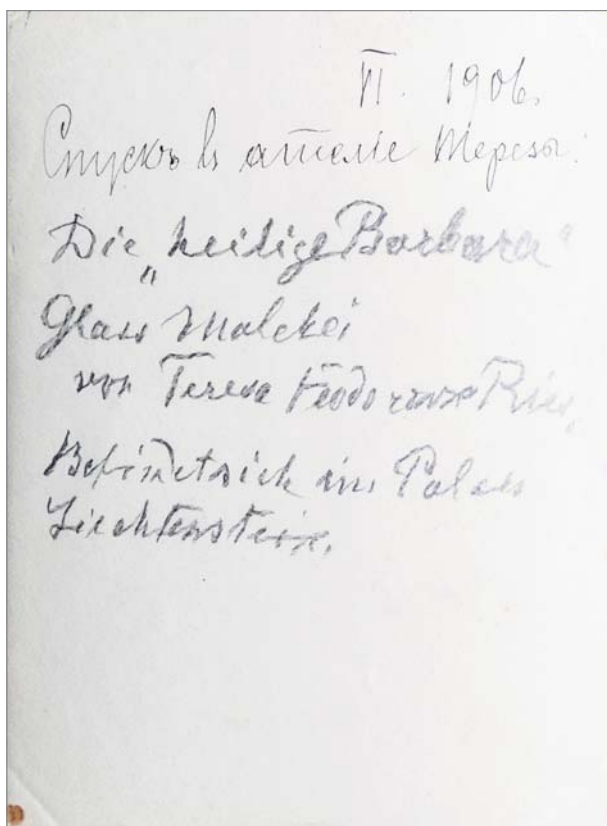 VI. 1906.
Спускъ въ ателье Терезы.
Die „heilige Barbara“
Glass Malekei
von Teresa Feodorowna Ries,
Befindet sich im Palais
Liechtenstein.